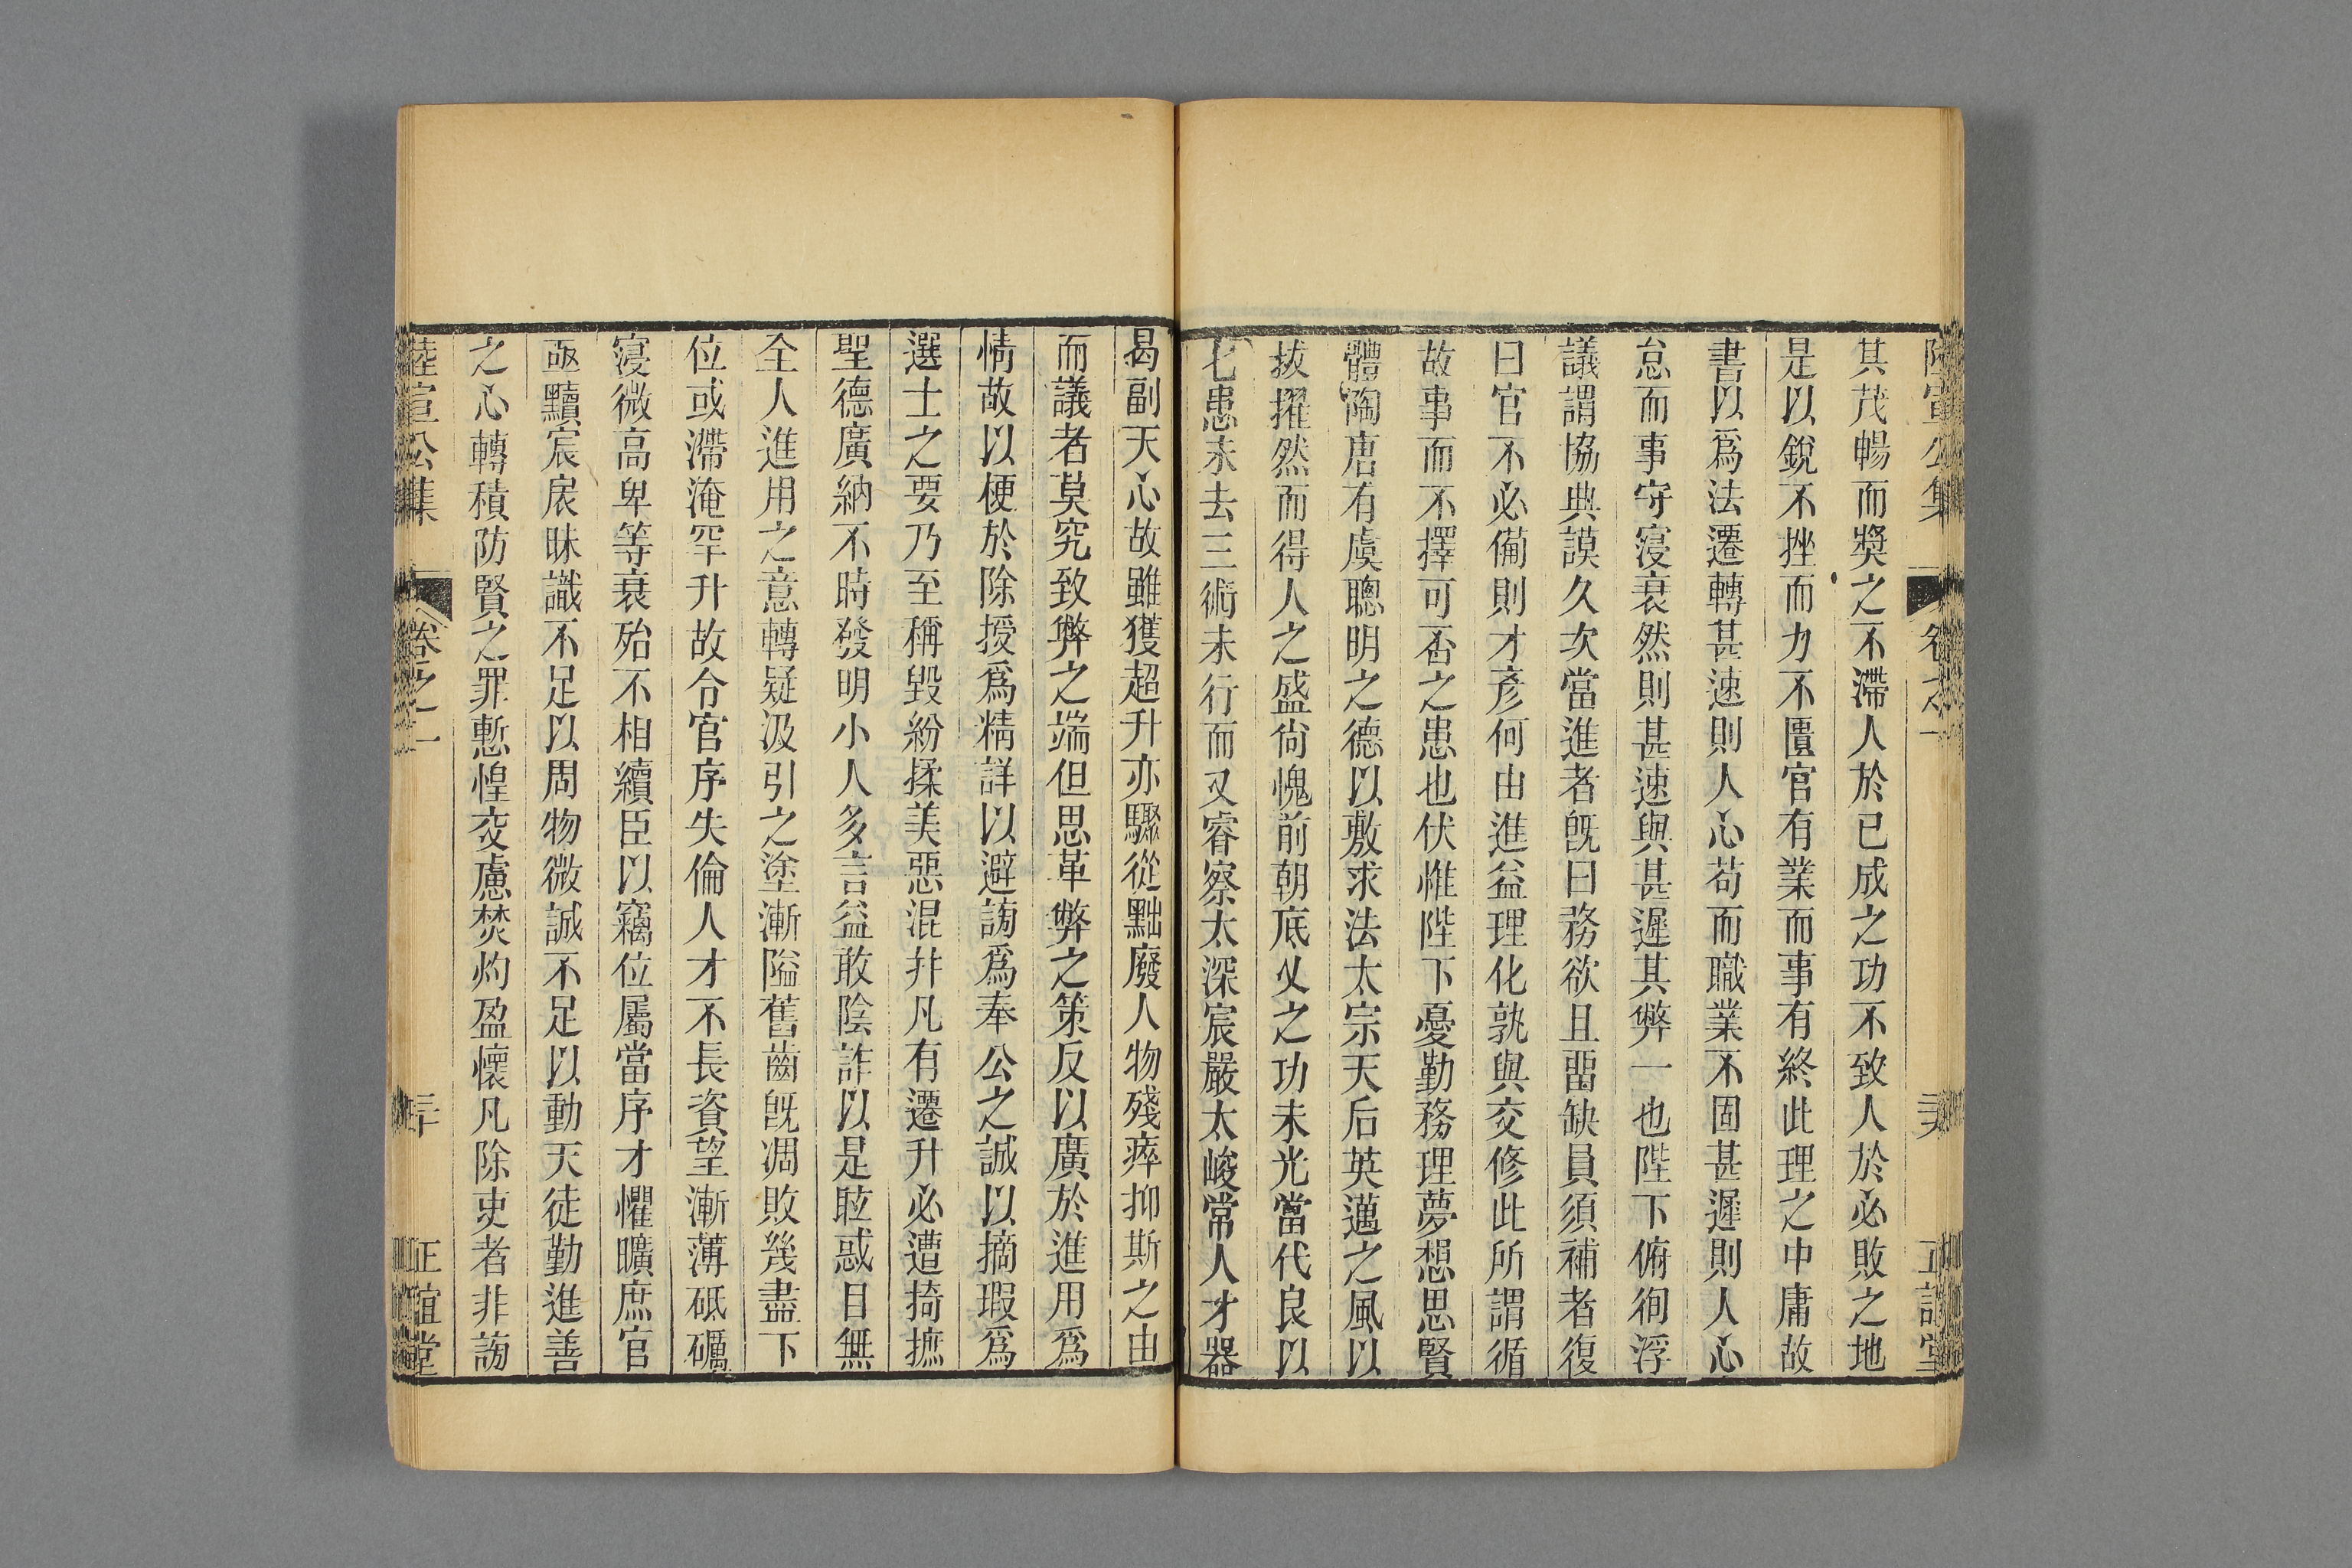 陸宣公集 卷之一 二十九 正誼堂
其茂暢而獎之不滯人於已成之功不致人於必敗之地
是以銳不挫而力不匱官有業而事有終此理之中庸故
書以爲法遷轉甚速則人心苟而職業不固甚遲則人心
怠而事守寖衰然則甚速與甚遲其弊一也陛下俯徇浮
議謂協典謨久次當進者旣曰務欲且畱缺員須補者復
曰官不必備則才彥何由進益理化孰與交修此所謂循
故事而不擇可否之患也伏惟陛下憂勤務理夢想思賢
體陶唐有虞聰明之德以敷求法太宗天后英邁之風以
拔擢然而得人之盛尚愧前朝底乂之功未光當代良以
七患未去三術未行而又睿察太深宸嚴太峻常人才器
曷副天心故雖獲超升亦驟從黜廢人物殘瘁抑斯之由
而議者莫究致弊之端但思革弊之策反以廣於進用爲
情故以梗於除授爲精詳以避謗爲奉公之誠以摘瑕爲
選士之要乃至稱毀紛揉美惡混幷凡有遷升必遭掎摭
聖德廣納不時發明小人多言益敢陰詐以是眩惑目無
全人進用之意轉疑汲引之塗漸隘舊齒旣凋敗幾盡下
位或滯淹罕升故令官序失倫人才不長資望漸薄砥礪
寖微高卑等衰殆不相續臣以竊位屬當序才懼曠庶官
亟黷宸扆昧識不足以周物微誠不足以動天徒勤進善
之心轉積防賢之罪慙惶交慮焚灼盈懷凡除吏者非謗
陸宣公集 卷之一 三十 正誼堂